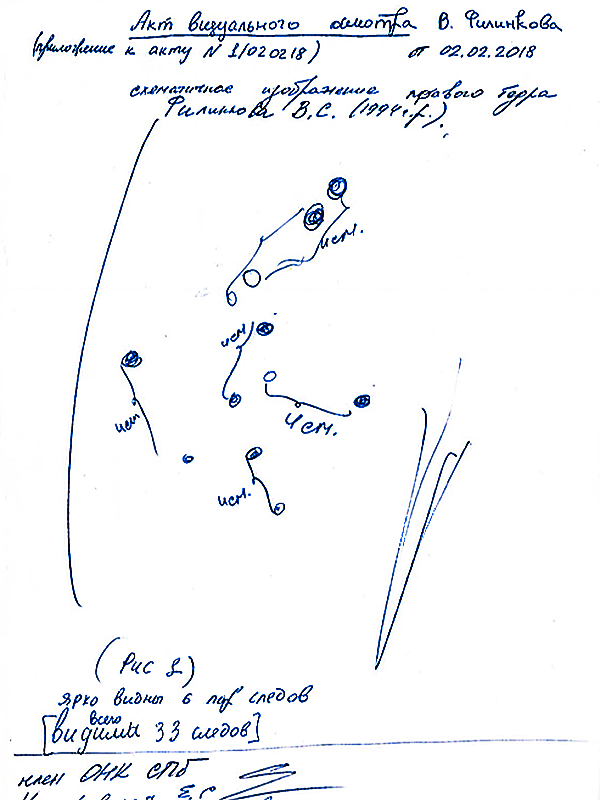 Акт визуального осмотра В. Филинкова
(приложение к акту N 1/020218) от 02.02.2018
схематичное изображение правого бедра
Филинкова В.С. (1994 г.р.)
4 см.
4 см
4 см
4 см.
4 см.
(Рис 1)
ярко видны 6 пар следов
[всего видими 33 следов]
член ОНК СПб